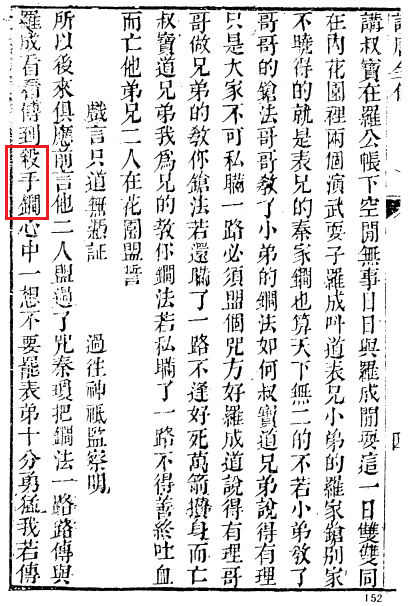 講叔寶在羅公帳下空閒無事日日與羅成閒耍這一日雙雙同
在內花園裡兩個演武耍子羅成呌道表兄小弟的羅家鎗別家
不曉得的就是表兄的秦家鐧也算天下無二的不若小弟教了
哥哥的鎗法哥哥教了小弟的鐧法如何叔寶道兄弟說得有理
只是大家不可私瞞一路必須盟個咒方好羅成道說得有理哥
哥做兄弟的教你鎗法若還瞞了一路不逢好死萬箭攢身而亡
叔寶道兄弟我為兄的教你鐧法若私瞞了一路不得善終吐血
而亡他弟兄二人在花園盟誓
戲言只道無憑証　過往神祗監察明
所以後來俱應前言他二人盟過了咒秦瓊把鐧法一路路傳與
羅成看看傳到殺手鐧心中一想不要罷表弟十分勇猛我若傳
四
152